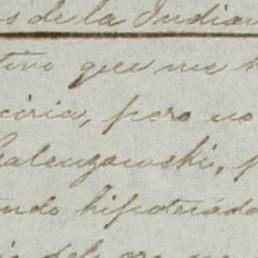 s de la Indian
tivo que me h
ciria, pero no
Galenzowski, p
ando hipotecado